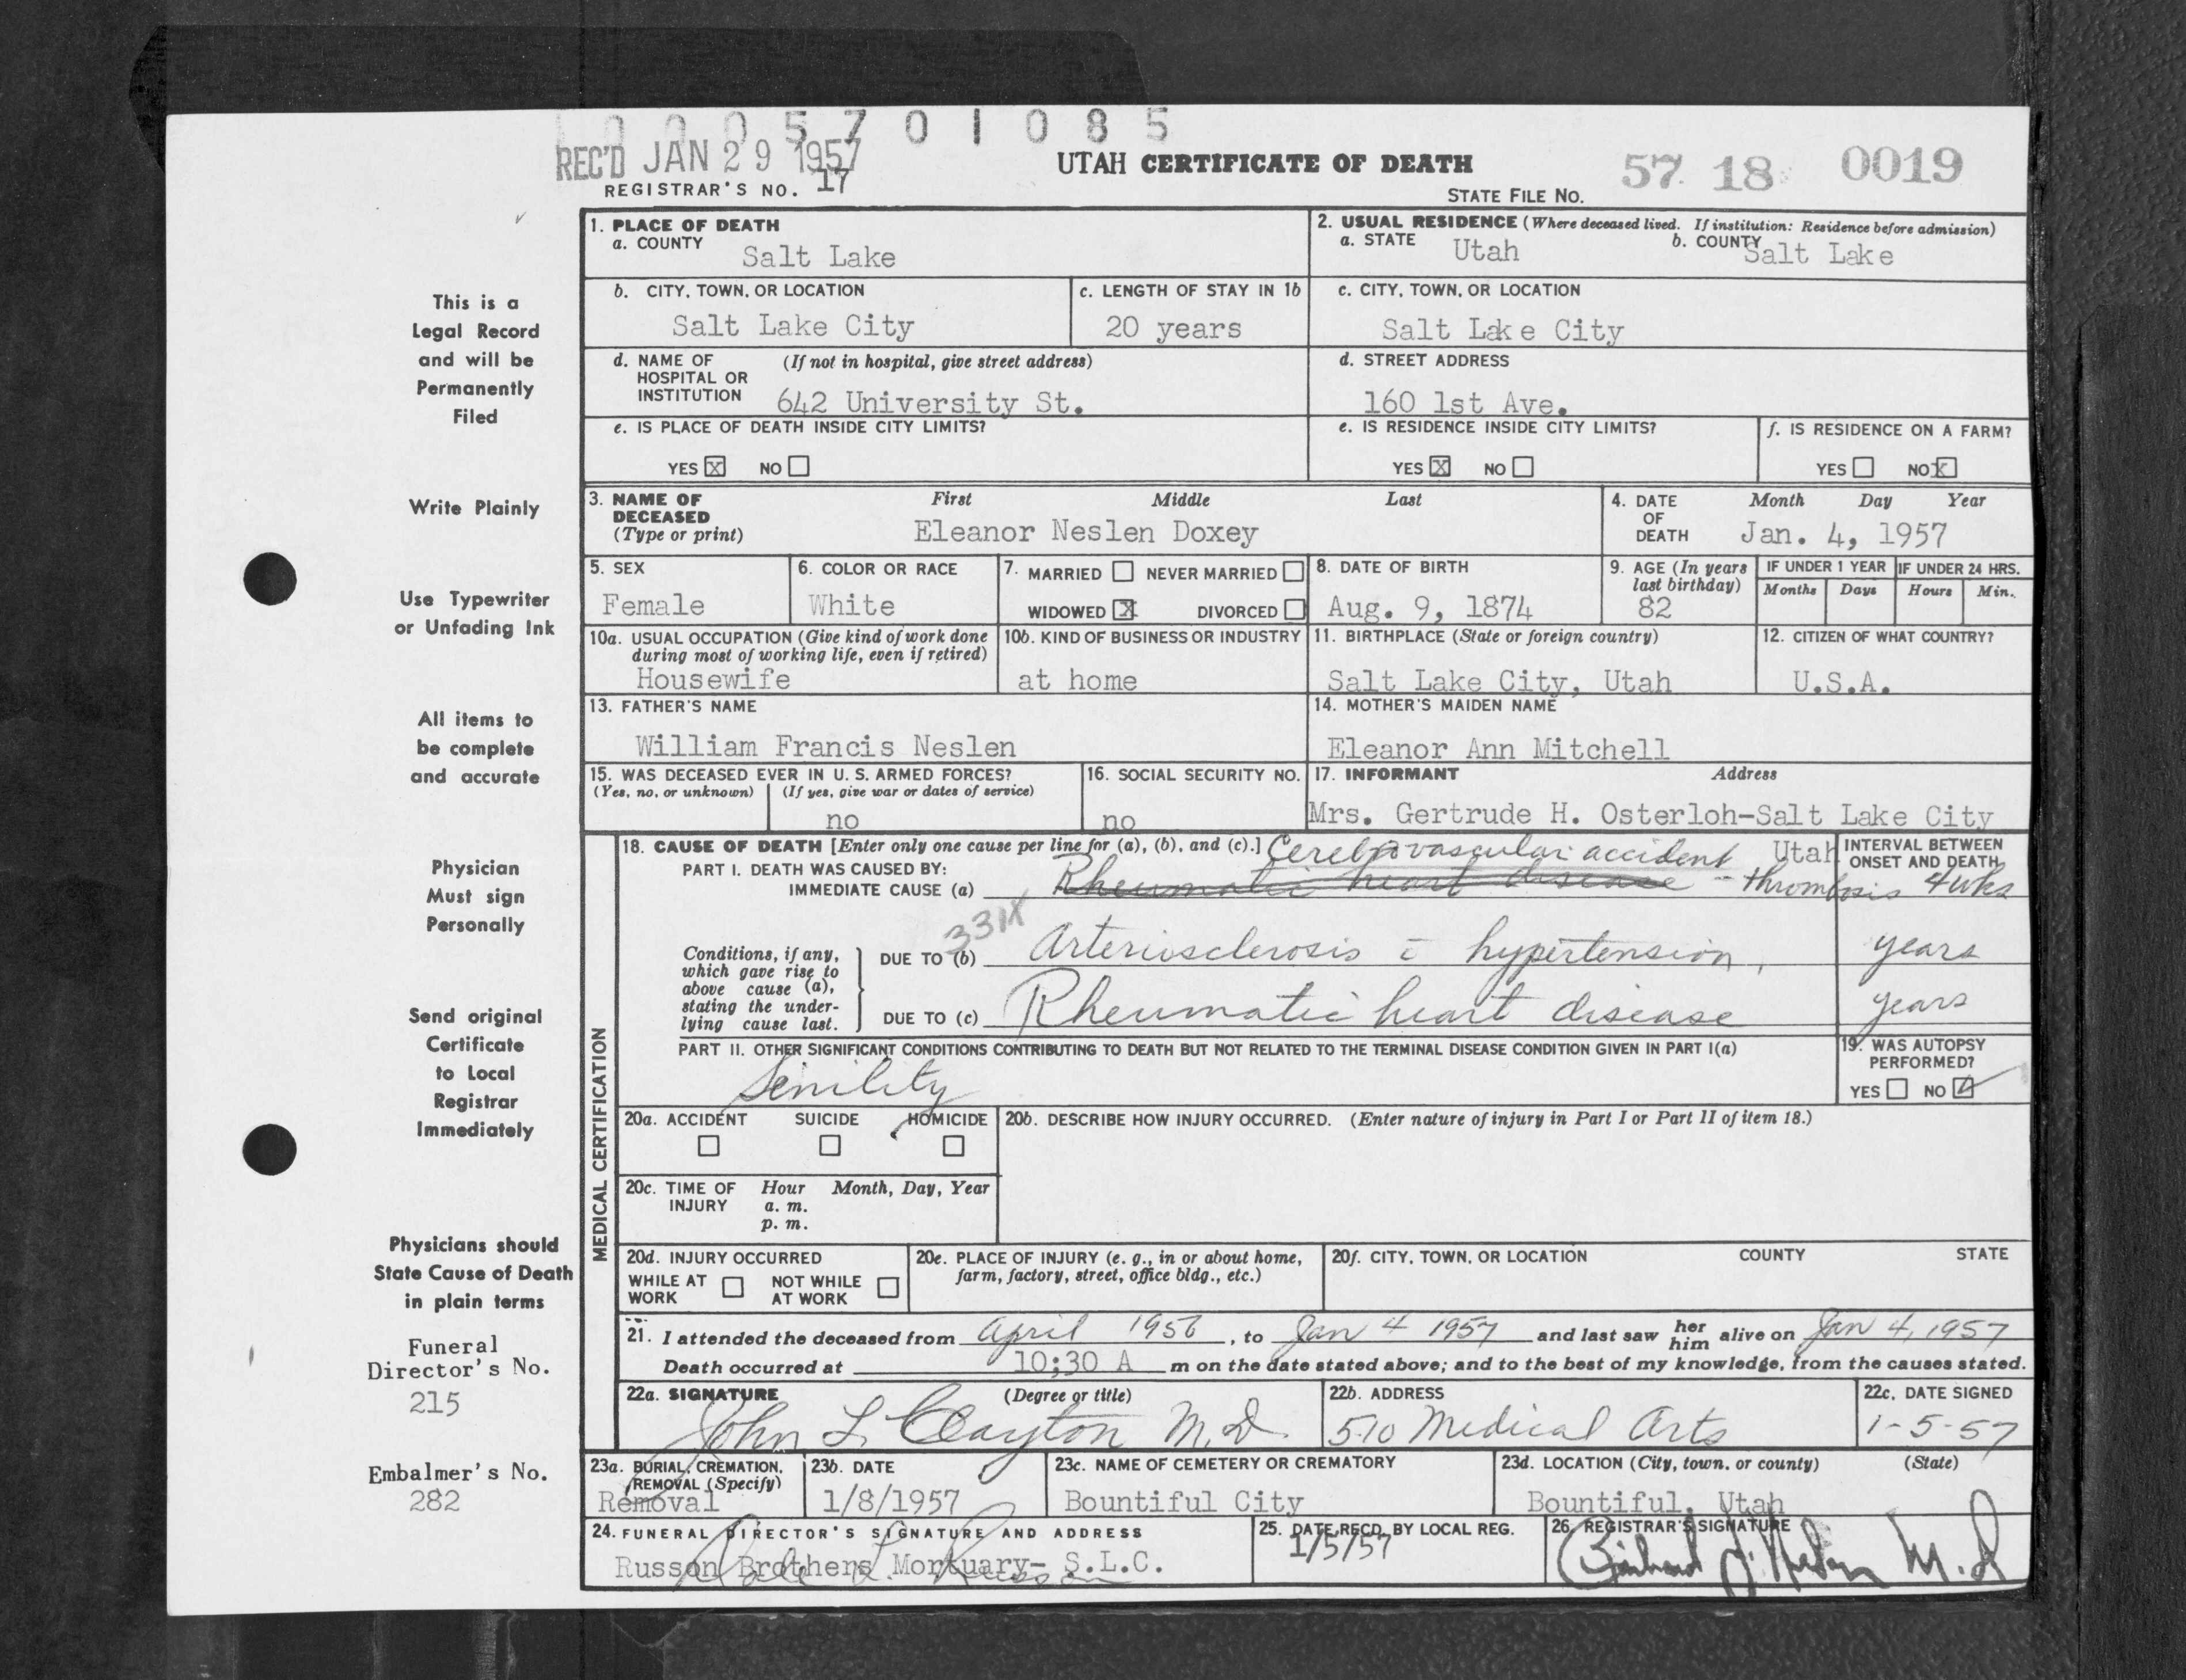 0 0 0 5 7 0 1 0 8 5
REC'D JAN 29 1957
UTAH CERTIFICATE OF DEATH
57 18 0019
REGISTRAR'S NO. 17
STATE FILE No.
This is a
Legal Record
and will be
Permanently
Filed
Write Plainly
Use Typewriter
or Unfading Ink
All items to
be complete
and accurate
Physician
Must sign
Personally
Send original
Certificate
to Local
Registrar
Immediately
Physicians should
State Cause of Death
in plain terms
Funeral
Director's No.
215
Embalmer's No.
282
1. PLACE OF DEATH
a. COUNTY Salt Lake
2. USUAL RESIDENCE (Where deceased lived. If institution: Residence before admission)
a. STATE Utah b. COUNTY Salt Lake
b. CITY, TOWN, OR LOCATION
Salt Lake City
c. LENGTH OF STAY IN 1b
20 years
c. CITY, TOWN, OR LOCATION
Salt Lake City
d. NAME OF (If not in hospital, give street address)
HOSPITAL OR
INSTITUTION 642 University St.
d. STREET ADDRESS
160 1st Ave.
e. IS PLACE OF DEATH INSIDE CITY LIMITS?
YES X NO
e. IS RESIDENCE INSIDE CITY LIMITS?
YES X NO
f. IS RESIDENCE ON A FARM?
YES NO X
3. NAME OF
DECEASED
(Type or print)
First Middle Last
Eleanor Neslen Doxey
4. DATE
OF
DEATH
Month Day Year
Jan. 4, 1957
5. SEX
Female
6. COLOR OR RACE
White
7. MARRIED NEVER MARRIED
WIDOWED X DIVORCED
8. DATE OF BIRTH
Aug. 9, 1874
9. AGE (In years
last birthday)
82
IF UNDER 1 YEAR
Months Days
IF UNDER 24 HRS.
Hours Min.
10a. USUAL OCCUPATION (Give kind of work done
during most of working life, even if retired)
Housewife
10b. KIND OF BUSINESS OR INDUSTRY
at home
11. BIRTHPLACE (State or foreign country)
Salt Lake City, Utah
12. CITIZEN OF WHAT COUNTRY?
U.S.A.
13. FATHER'S NAME
William Francis Neslen
14. MOTHER'S MAIDEN NAME
Eleanor Ann Mitchell
15. WAS DECEASED EVER IN U. S. ARMED FORCES?
(Yes, no, or unknown) (If yes, give war or dates of service)
no
16. SOCIAL SECURITY NO.
no
17. INFORMANT Address
Mrs. Gertrude H. Osterloh-Salt Lake City
Utah
MEDICAL CERTIFICATION
18. CAUSE OF DEATH [Enter only one cause per line for (a), (b), and (c).] Cerebrovascular accident
PART I. DEATH WAS CAUSED BY:
IMMEDIATE CAUSE (a) Rheumatic heart disease - thrombosis
INTERVAL BETWEEN
ONSET AND DEATH
4 wks
331X
Conditions, if any,
which gave rise to
above cause (a),
stating the under-
lying cause last.
DUE TO (b) Arteriosclerosis c̄ hypertension,
years
DUE TO (c) Rheumatic heart disease
years
PART II. OTHER SIGNIFICANT CONDITIONS CONTRIBUTING TO DEATH BUT NOT RELATED TO THE TERMINAL DISEASE CONDITION GIVEN IN PART I(a)
Senility
19. WAS AUTOPSY
PERFORMED?
YES NO ✓
20a. ACCIDENT SUICIDE HOMICIDE
20b. DESCRIBE HOW INJURY OCCURRED. (Enter nature of injury in Part I or Part II of item 18.)
20c. TIME OF Hour Month, Day, Year
INJURY a. m.
p. m.
20d. INJURY OCCURRED
WHILE AT NOT WHILE
WORK AT WORK
20e. PLACE OF INJURY (e. g., in or about home,
farm, factory, street, office bldg., etc.)
20f. CITY, TOWN, OR LOCATION COUNTY STATE
21. I attended the deceased from April 1956, to Jan 4 1957 and last saw her him alive on Jan 4, 1957
Death occurred at 10:30 A m on the date stated above; and to the best of my knowledge, from the causes stated.
22a. SIGNATURE (Degree or title)
John L. Clayton M.D.
22b. ADDRESS
510 Medical Arts
22c. DATE SIGNED
1-5-57
23a. BURIAL, CREMATION,
REMOVAL (Specify)
Removal
23b. DATE
1/8/1957
23c. NAME OF CEMETERY OR CREMATORY
Bountiful City
23d. LOCATION (City, town, or county) (State)
Bountiful, Utah
24. FUNERAL DIRECTOR'S SIGNATURE AND ADDRESS
Russon Brothers Mortuary- S.L.C.
25. DATE RECD. BY LOCAL REG.
1/5/57
26. REGISTRAR'S SIGNATURE
M.D